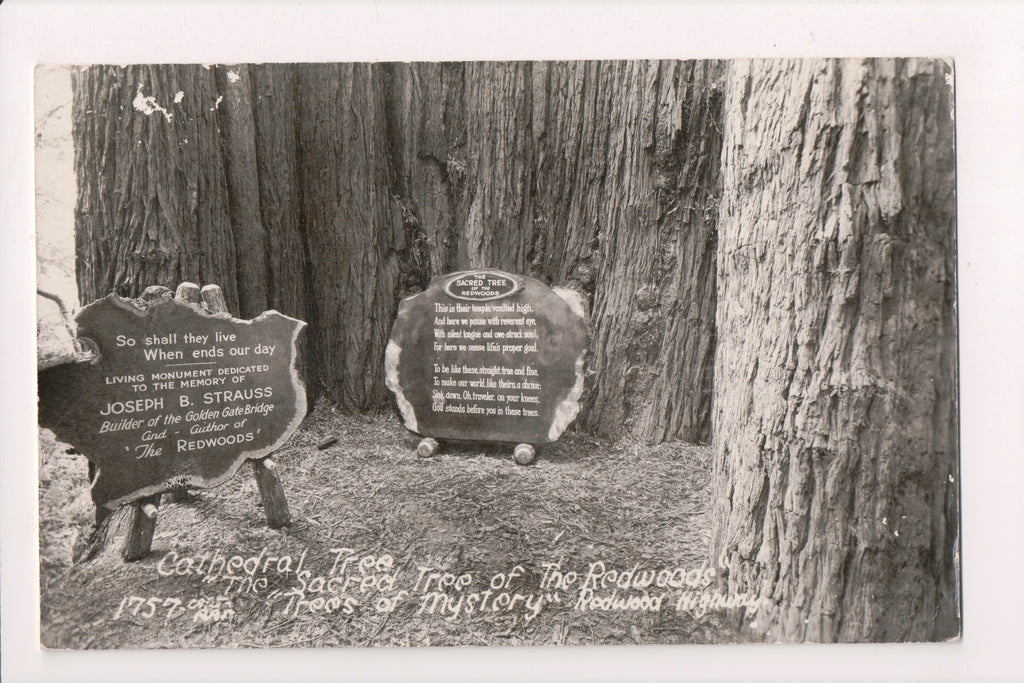 So shall they live
When ends our day
LIVING MONUMENT DEDICATED
TO THE MEMORY OF
JOSEPH B. STRAUSS
Builder of the Golden Gate Bridge
and - Author of
"The REDWOODS"
THE
SACRED TREE
OF THE
REDWOODS
This is their temple, vaulted high,
And here we pause with reverent eye,
With silent tongue and awe-struck soul,
For here we sense life's proper goal.
To be like these, straight, true and fine,
To make our world, like theirs, a shrine;
Sink down, Oh, traveler, on your knees,
God stands before you in these trees.
Cathedral Tree
"The Sacred Tree of The Redwoods"
1757 "Trees of Mystery" Redwood Highway